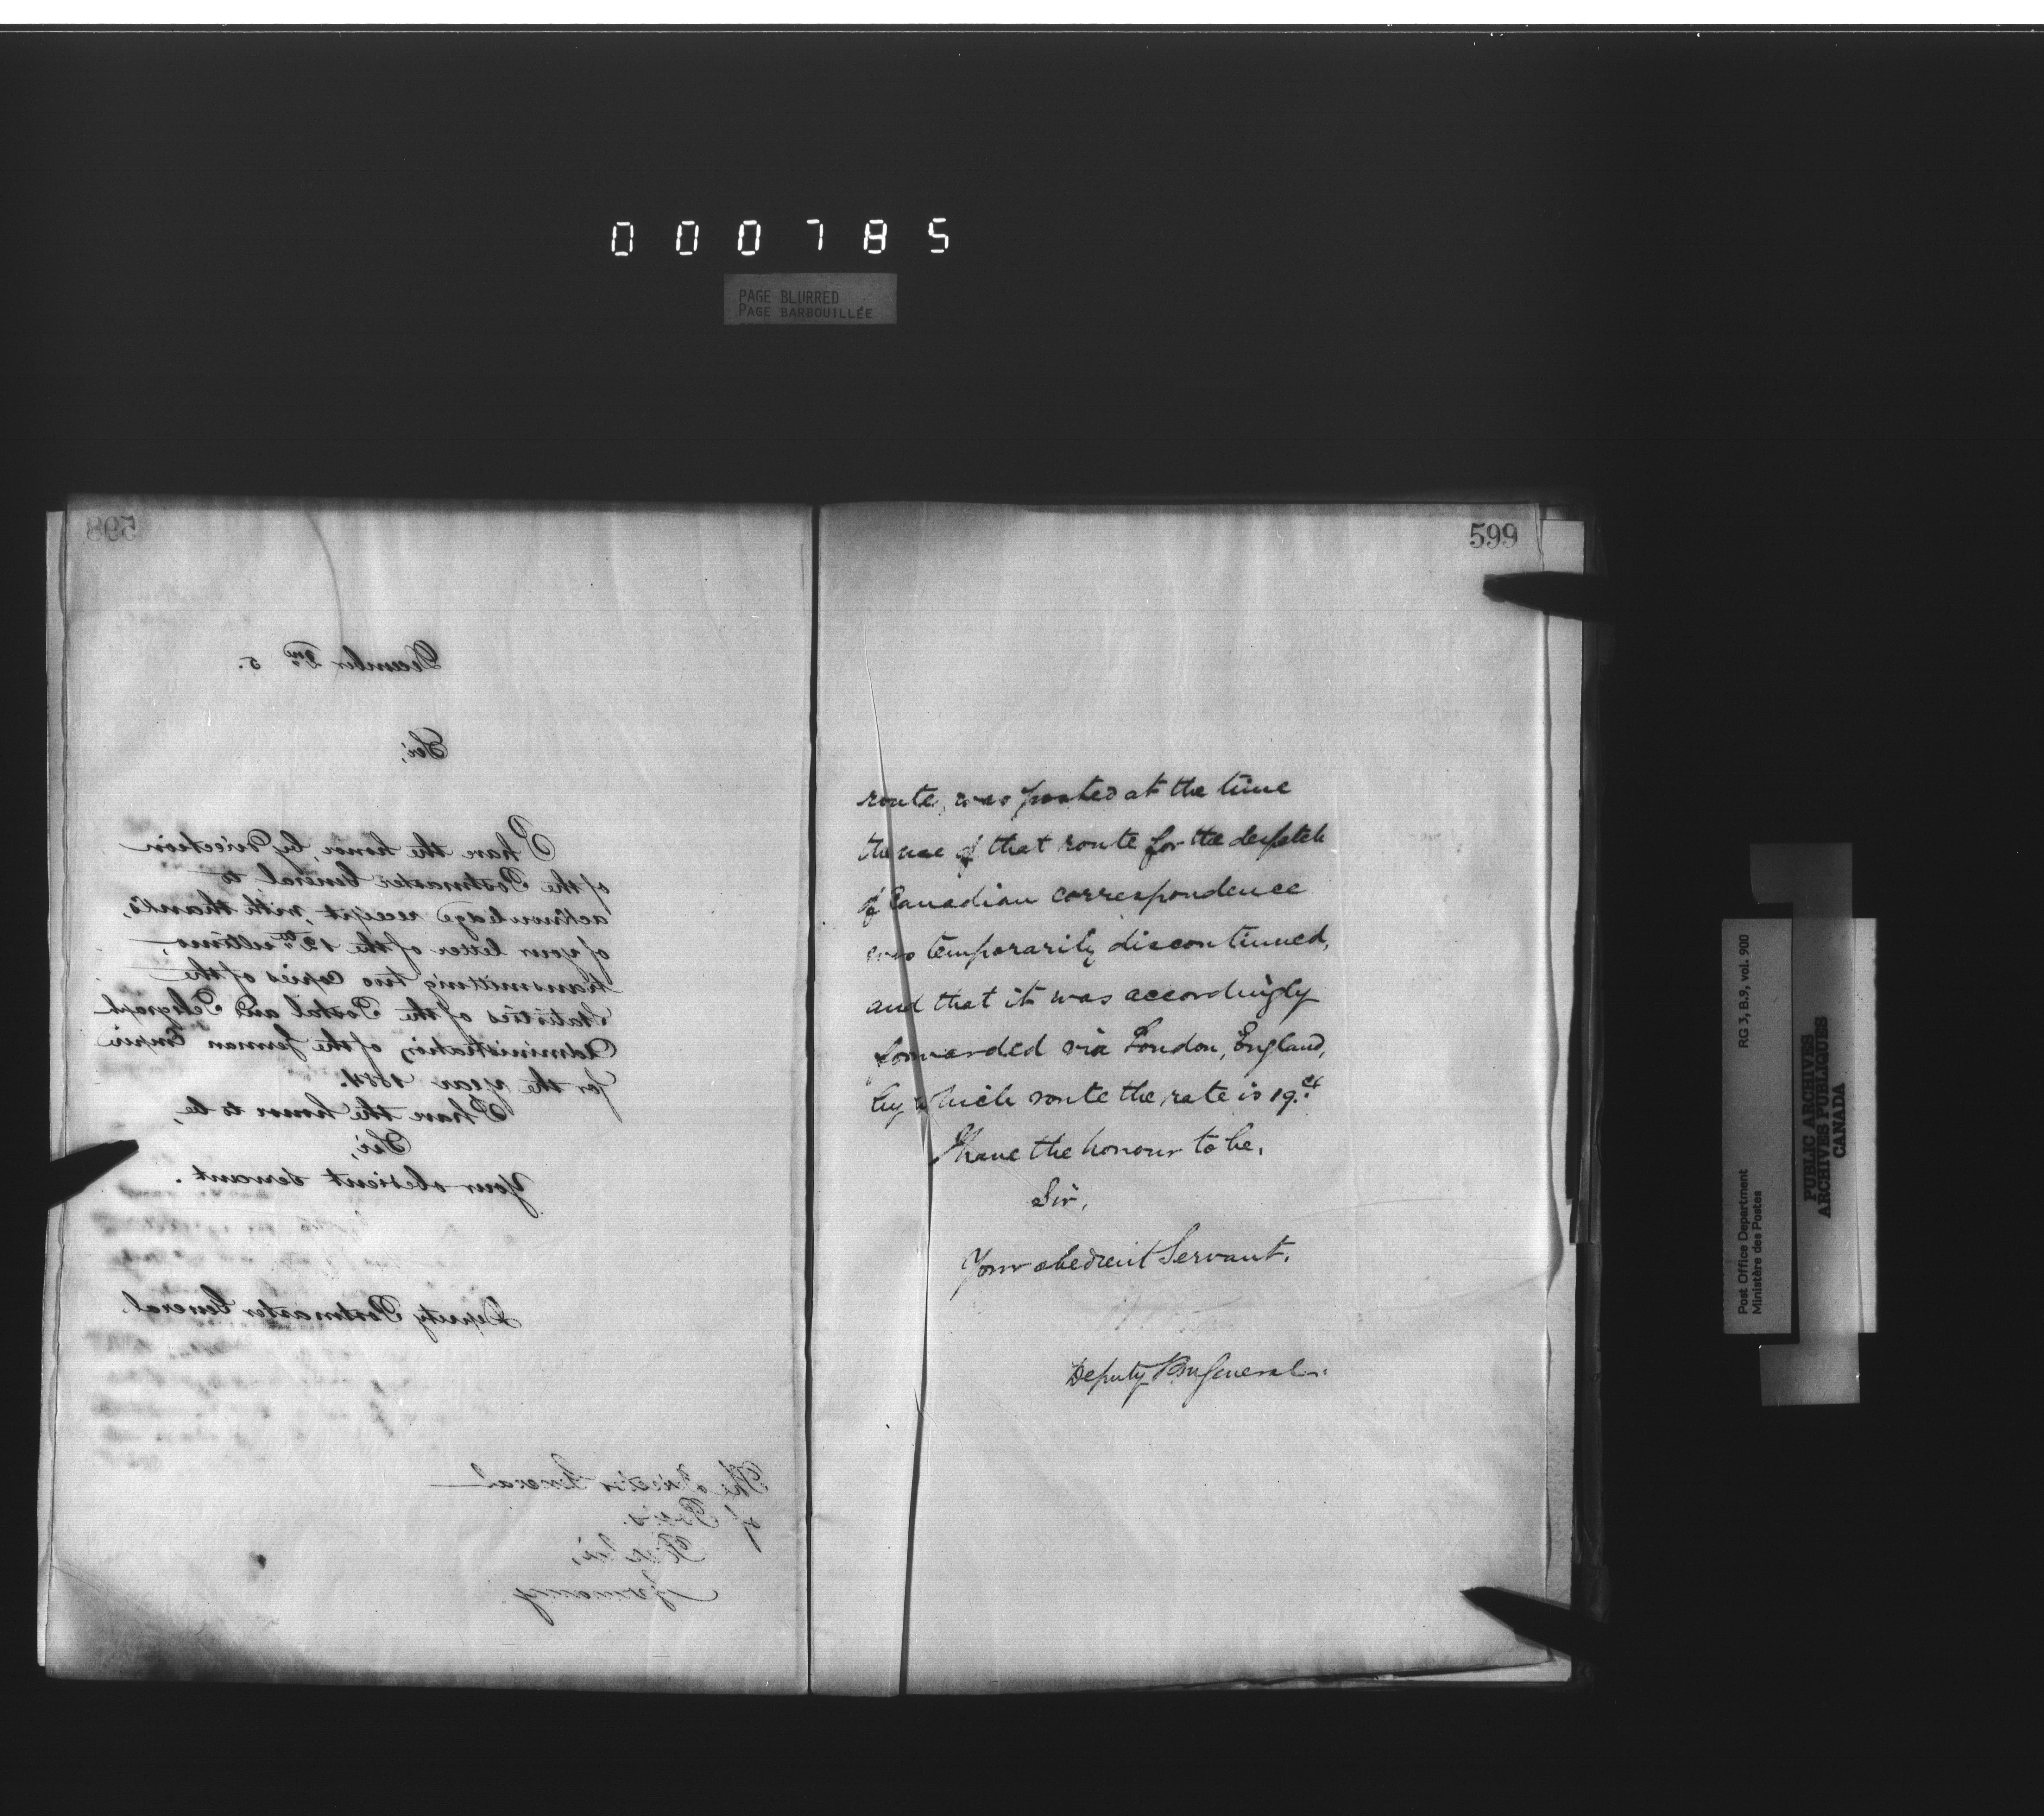 000785
PAGE BLURRED
PAGE BARBOUILLÉE
598
December 2nd 5.
Sir,
I have the honor, by direction
of the Postmaster General to
acknowledge receipt, with thanks,
of your letter of the 12th ultimo,
transmitting two copies of the
Statistics of the Postal and Telegraph
Administration of the German Empire
for the year 1884.
I have the honor to be,
Sir,
Your obedient servant.
Deputy Postmaster General
The Director General
of Posts.
Berlin,
Germany
599
route, was posted at the time
the use of that route for the despatch
of Canadian correspondence
was temporarily discontinued,
and that it was accordingly
forwarded via London, England,
by which route the rate is 19.cts
I have the honour to be,
Sir,
Your obedient Servant.
Deputy P M General.
Post Office Department
Ministère des Postes
RG 3, B.9, vol. 900
PUBLIC ARCHIVES
ARCHIVES PUBLIQUES
CANADA